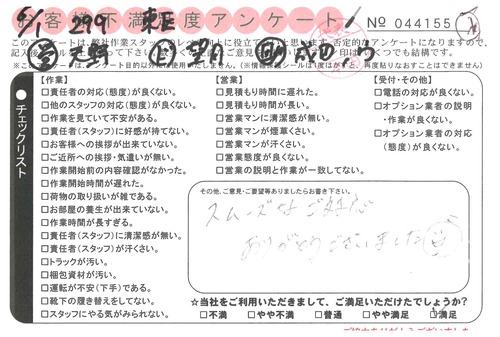 6/1 299 東E
お客様不満足度アンケート
No 044155
このアンケートは、弊社作業スタッフのレベル向上に役立てていと思います。否定的なアンケートになりますので、ご
※このアンケートは、アンケート目的以外には使用いたしません。
チェックリスト
【作業】
□責任者の対応(態度)が良くない。
□他のスタッフの対応(態度)が良くない。
□作業を見ていて不安がある。
□責任者(スタッフ)に好感が持てない。
□お客様への挨拶が出来ていない。
□ご近所への挨拶・気遣いが無い。
□作業開始前の内容確認がなかった。
□作業開始時間が遅れた。
□荷物の取り扱いが雑である。
□お部屋の養生が出来ていない。
□作業時間が長すぎる。
□責任者(スタッフ)に清潔感が無い。
□責任者(スタッフ)が汗くさい。
□トラックが汚い。
□梱包資材が汚い。
□運転が不安(下手)である。
□靴下の履き替えをしてない。
□スタッフにやる気がみられない。
【営業】
□見積もり時間に遅れた。
□見積もり時間が長い。
□営業マンに清潔感が無い。
□営業マンが煙草くさい。
□営業マンが汗くさい。
□営業態度が良くない。
□営業の説明と作業が一致してない。
【受付・その他】
□電話の対応が良くない。
□オプション業者の説明
・作業が良くない。
□オプション業者の対応
(態度)が良くない。
その他、ご意見・ご要望等ありましたらお書き下さい。
スムーズなご対応
ありがとうございました
☆当社をご利用いただきまして、ご満足いただけたでしょうか?
□不満 □やや不満 □普通 □やや満足 □満足
ご協力ありがとうございました